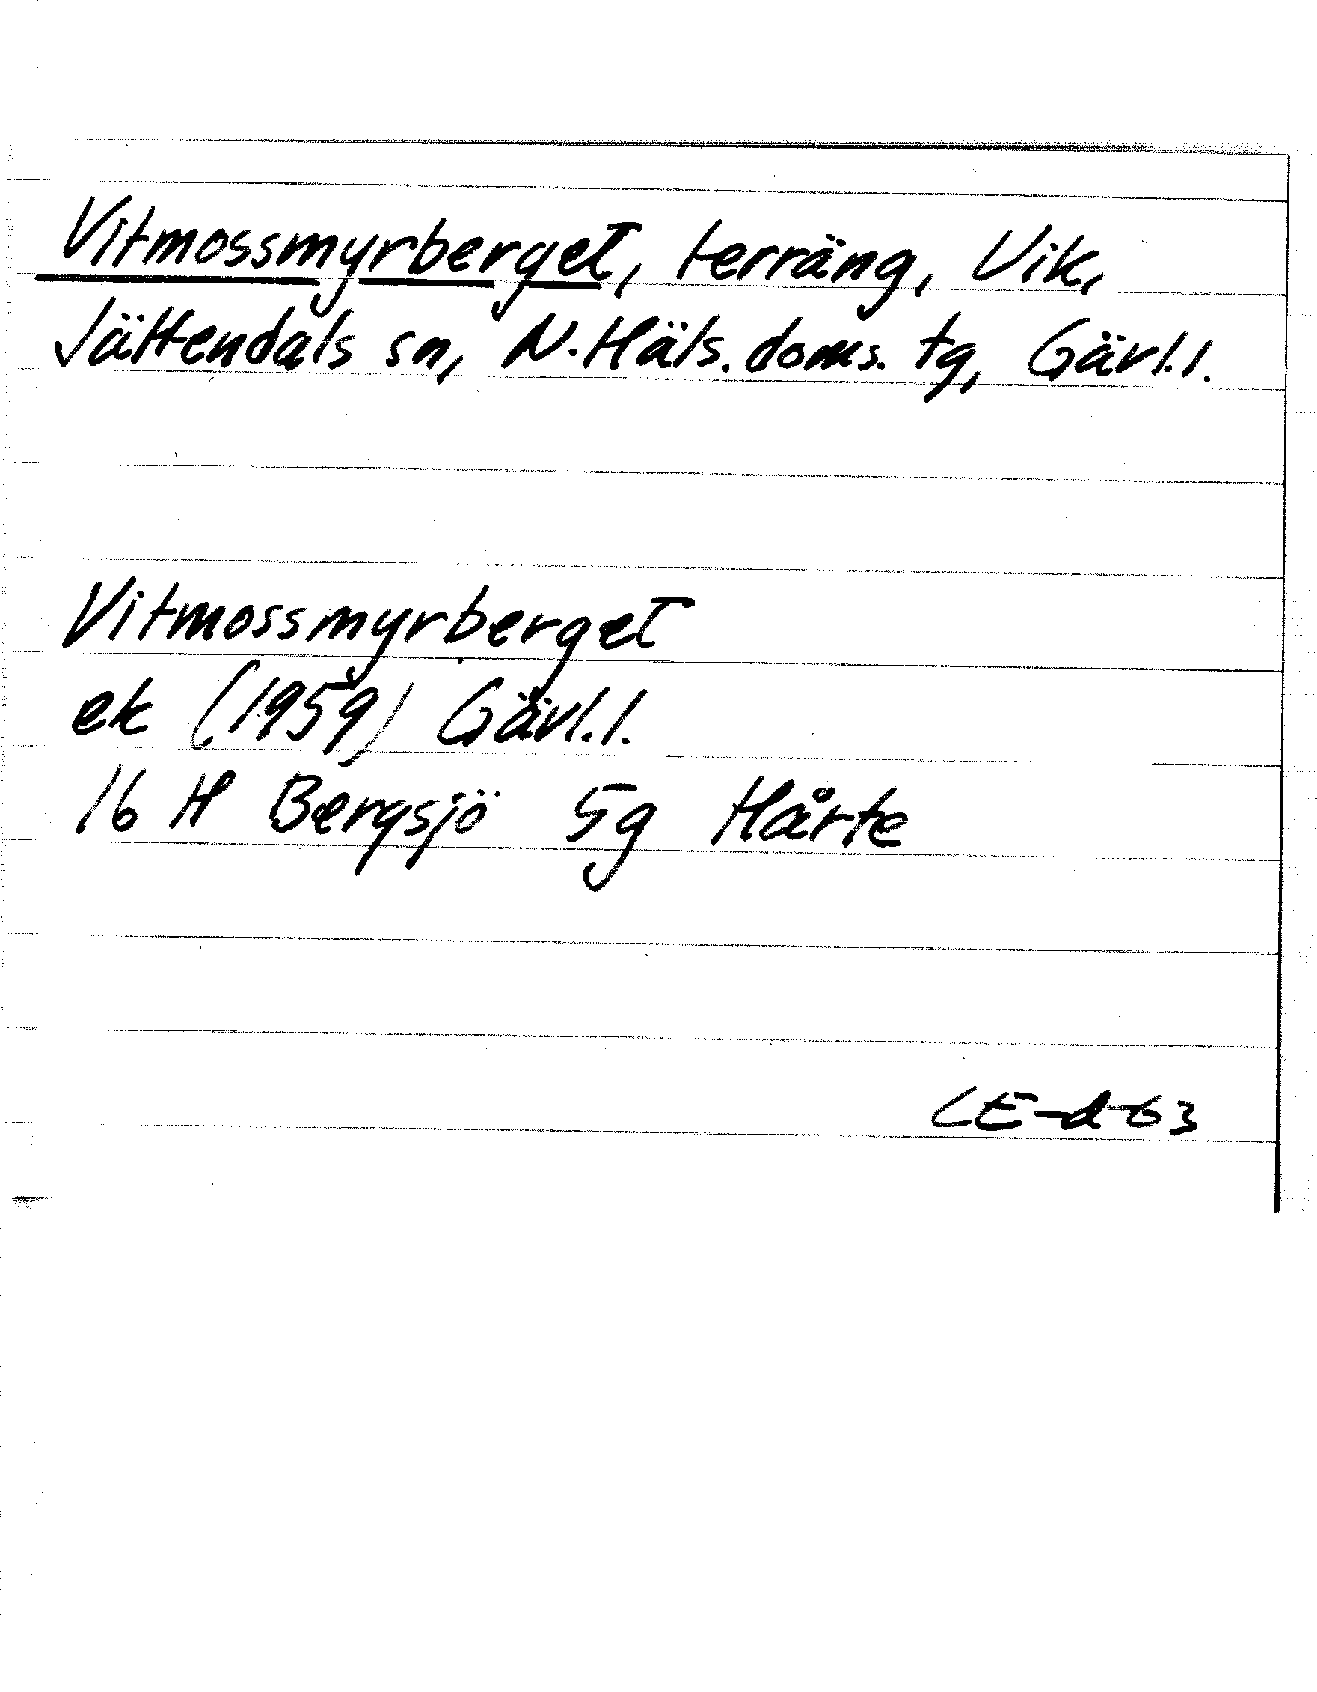 Vitmossmyrberget, terräng, Vik,
Jättendals sn, N. Häls. doms. tg, Gävl.l.
Vitmossmyrberget
ek (1959) Gävl.l.
16 H Bergsjö 5g Hårte
CE-d-63